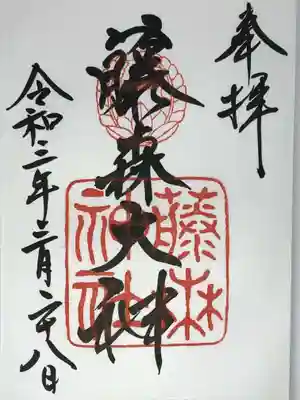 奉拝
藤森大神
藤森神社
令和三年二月二十八日